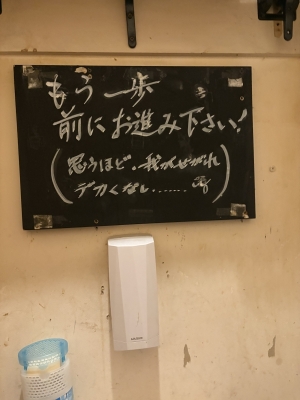 もう一歩
前にお進み下さい!
(思うほど、我がせがれ
デカくなし……)